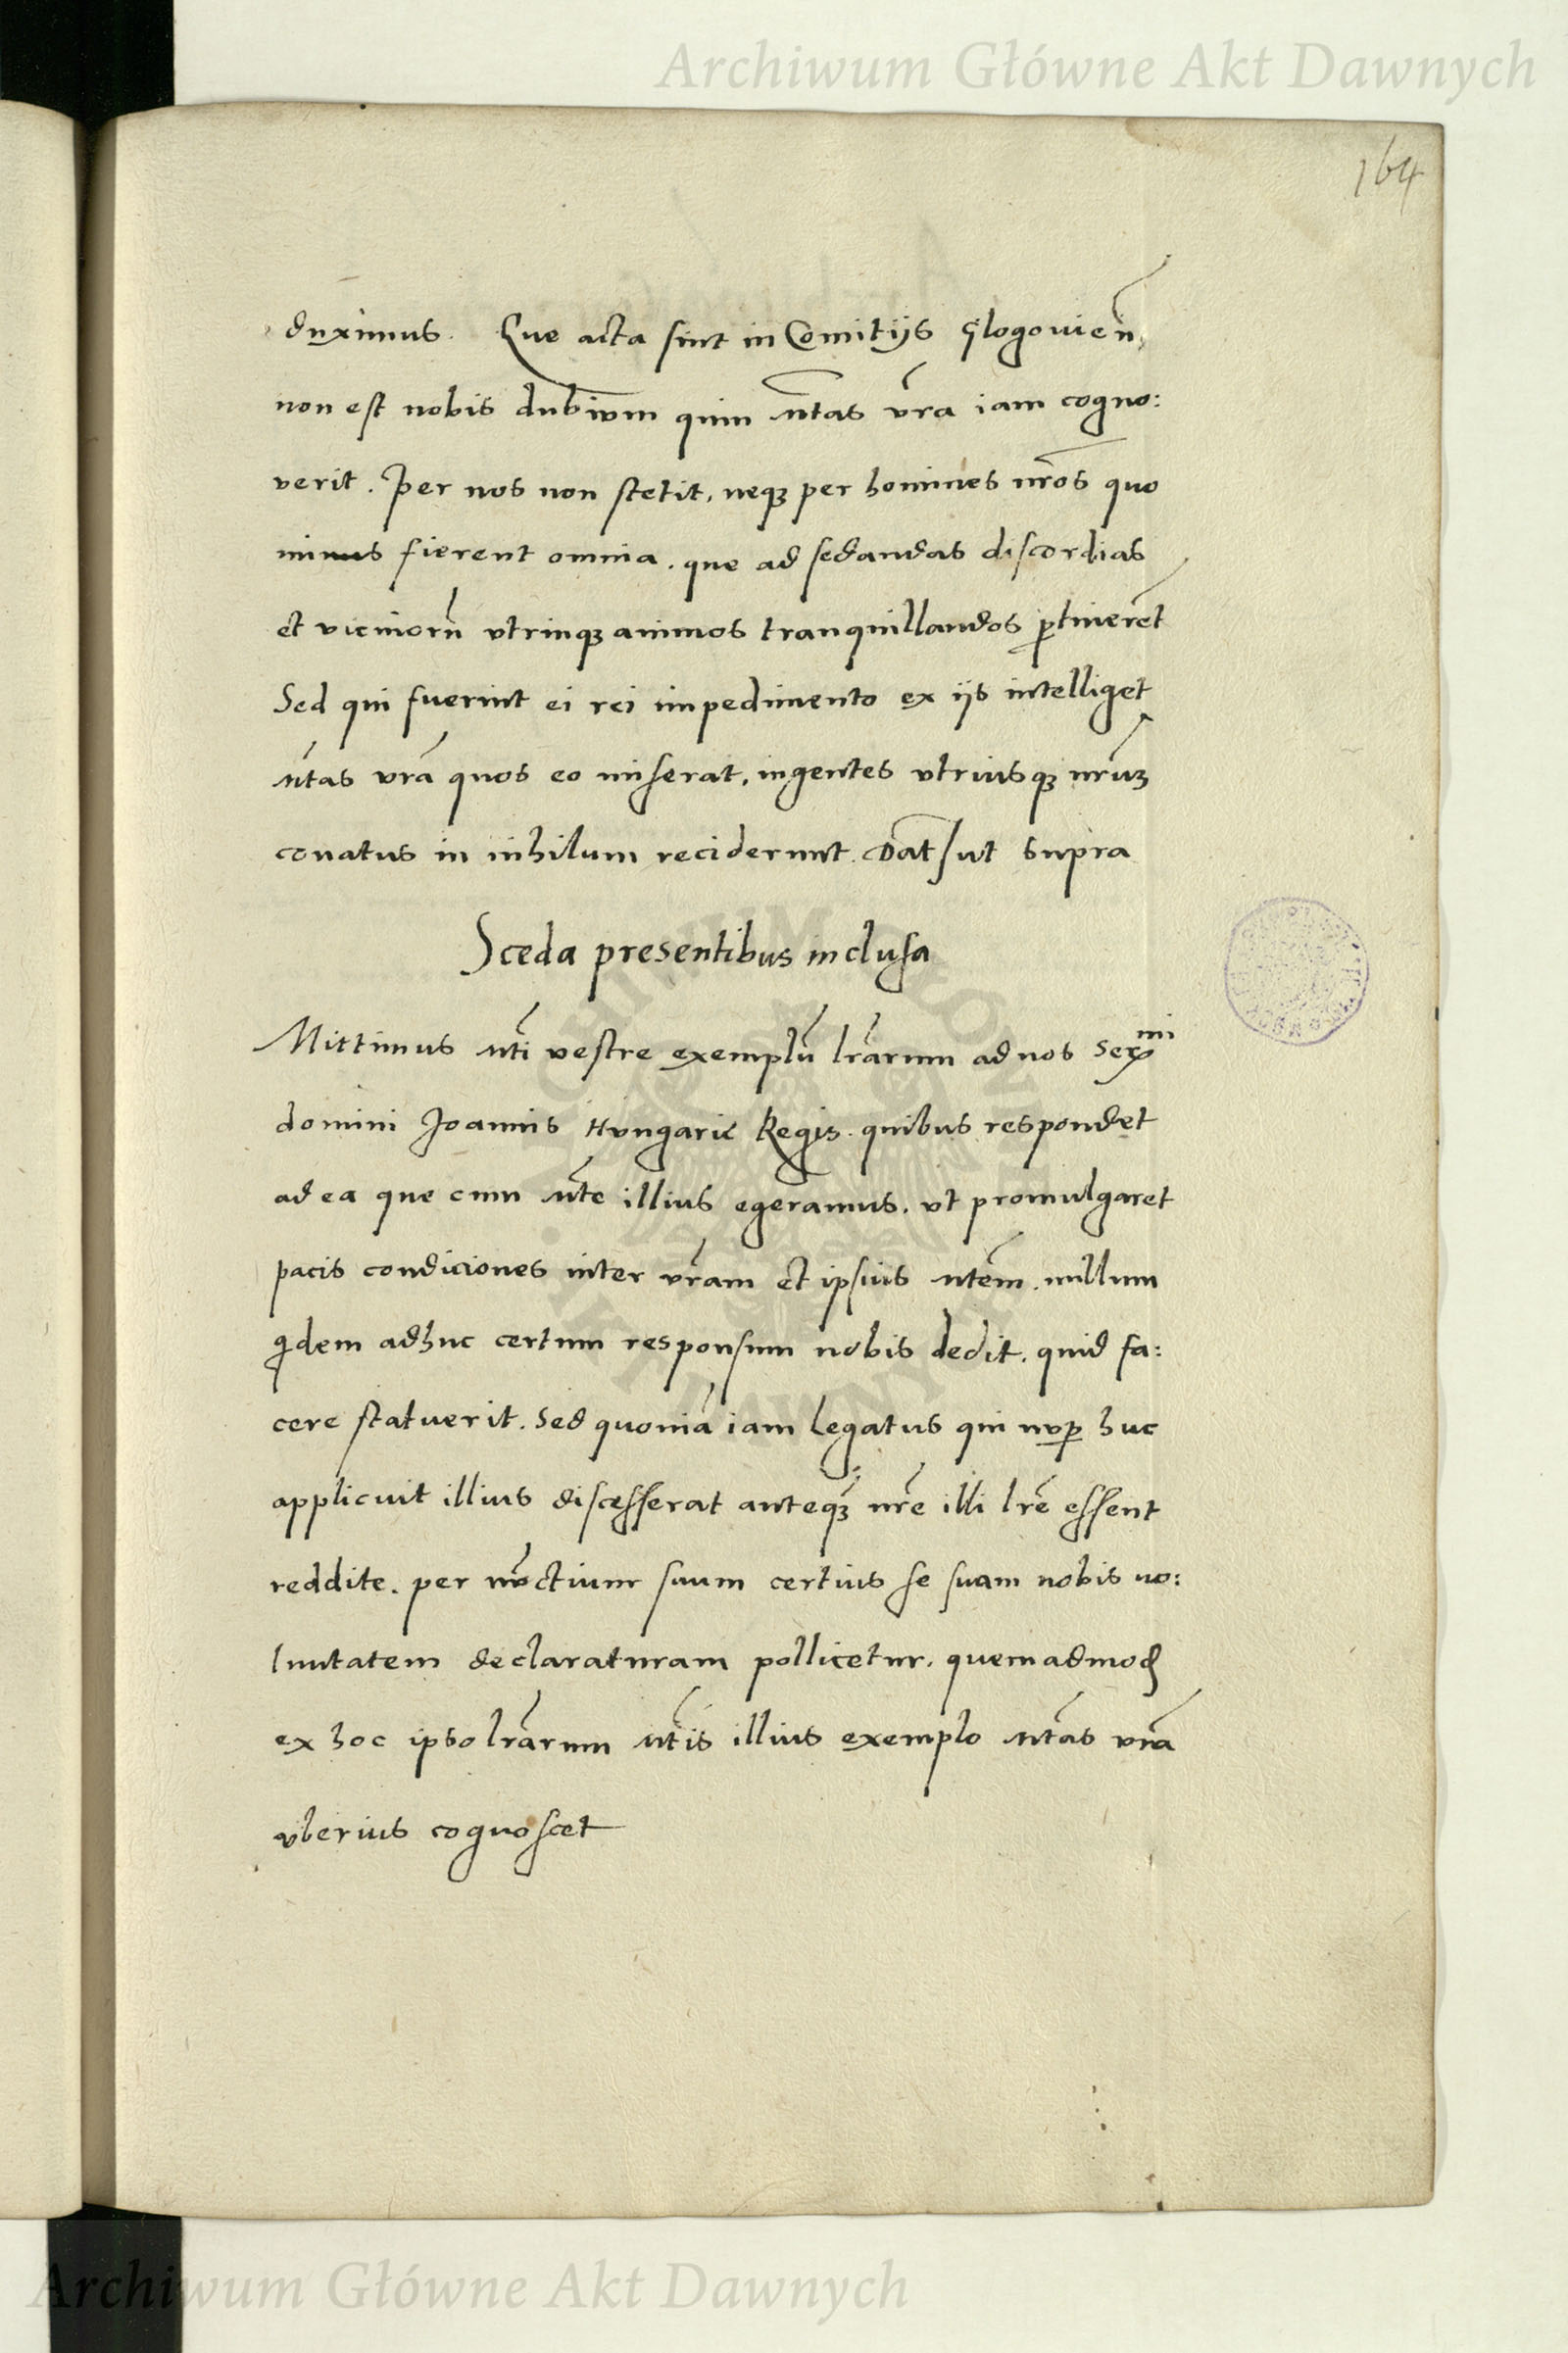 Archiwum Główne Akt Dawnych
164
duximus. Que acta sint in Comitijs Glogouien̄,
non est nobis dubium quin Mtas vr̄a iam cogno:
verit. Per nos non stetit, neqꝫ per homines nr̄os quo
minus fierent omnia, que ad sedandas discordias
et vicinorū vtrinqꝫ animos tranquillandos ꝑtinerēt
Sed qui fuerint ei rei impedimento ex ijs intelliget
Mtas vrā quos eo miserat, ingentes vtriusqꝫ nrūm
conatus in nihilum reciderunt. Dat̄ ut supra
Sceda presentibus inclusa
Mittimus Mti vestre exemplū lrārum ad nos Serᵐⁱ
domini Joannis Hungarie Regis. quibus respondet
ad ea que cum Mte illius egeramus, vt promulgaret
pacis condiciones inter vrām et ipsius Mtem̄. nullum
qdem adhuc certum responsum nobis dedit, quid fa:
cere statuerit. Sed quoniā iam legatus qui nuꝑ huc
applicuit illius discesserat anteqꝫ nrē illi lrē essent
reddite. per nūctium suum certius se suam nobis uo:
luntatem declaraturam pollicetur, quemadmod
ex hoc ipso lrārum Mtis illius exemplo Mtas vrā
vberius cognoscet
Archiwum Główne Akt Dawnych